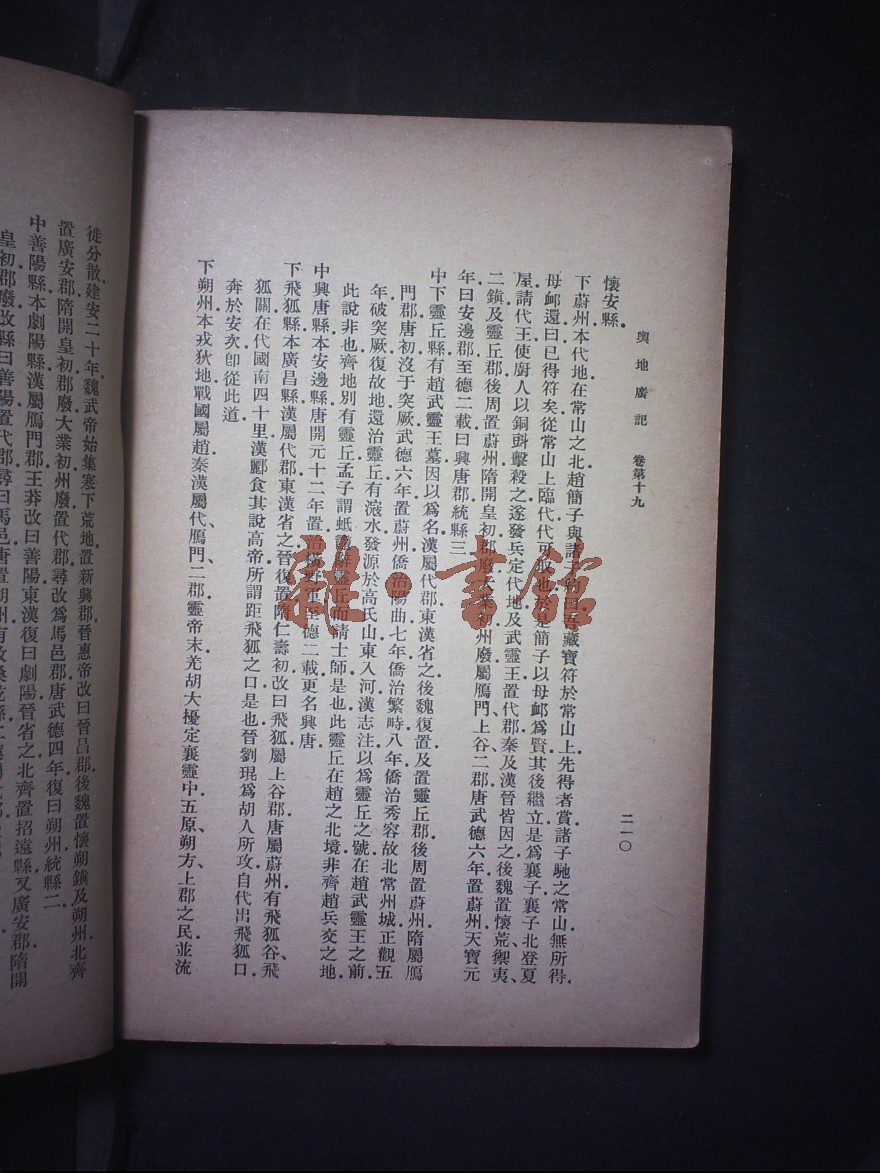 輿地廣記　卷第十九
二一〇
懷安縣。
下蔚州本代地在常山之北趙簡子與諸子約曰吾藏寶符於常山上先得者賞諸子馳之常山無所得。
母卹還曰已得符矣從常山上臨代代可取也於是簡子以母卹爲賢其後繼立是爲襄子襄子北登夏
屋請代王使廚人以銅㪷擊殺之遂發兵定代地及武靈王置代郡秦及漢晉皆因之後魏置懷荒禦夷、
二鎭及靈丘郡後周置蔚州隋開皇初郡廢大業初州廢屬鴈門、上谷二郡唐武德六年置蔚州天寶元
年曰安邊郡至德二載曰興唐郡統縣三
中下靈丘縣有趙武靈王墓因以爲名漢屬代郡東漢省之後魏復置及置靈丘郡後周置蔚州隋屬鴈
門郡唐初沒于突厥武德六年置蔚州僑治陽曲七年僑治繁畤八年僑治秀容故北常州城正觀五
年破突厥復故地還治靈丘有滱水發源於高氏山東入河漢志注以爲靈丘之號在趙武靈王之前。
此說非也齊地別有靈丘孟子謂蚳鼃辭靈丘而請士師是也此靈丘在趙之北境非齊趙兵交之地。
中興唐縣本安邊縣唐開元十二年置治橫野軍至德二載更名興唐。
下飛狐縣本廣昌縣漢屬代郡東漢省之晉復置隋仁壽初改曰飛狐屬上谷郡唐屬蔚州有飛狐谷、飛
狐關在代國南四十里漢酈食其說高帝所謂距飛狐之口是也晉劉琨爲胡人所攻自代出飛狐口。
奔於安次卽從此道
下朔州本戎狄地戰國屬趙秦漢屬代、鴈門二郡靈帝末羌胡大擾定襄靈中、五原、朔方、上郡之民並流
徙分散建安二十年魏武帝始集塞下荒地置新興郡晉惠帝改曰晉昌郡後魏置懷朔鎭及朔州北齊
置廣安郡隋開皇初郡廢大業初州廢置代郡尋改爲馬邑郡唐武德四年復曰朔州統縣二
中善陽縣本劇陽縣漢屬鴈門郡王莽改曰善陽東漢復曰劇陽晉省之北齊置招遠縣又廣安郡隋開
皇初郡廢改縣曰善陽置代郡尋曰馬邑唐置朔州有故桑乾縣
雜·書館